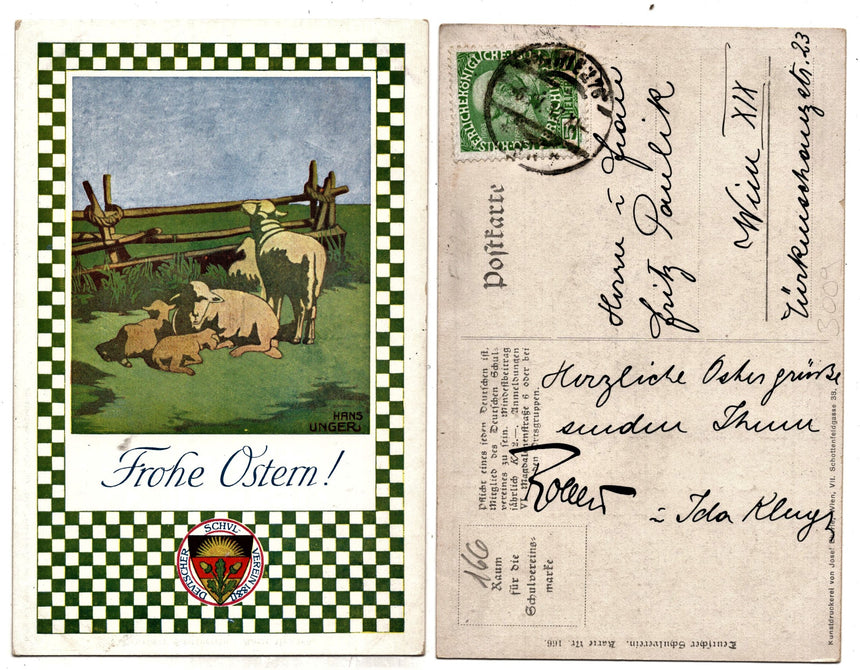 HANS
UNGER
Frohe Ostern!
DEUTSCHER SCHUL-VEREIN 1880
KAISERLICHEKÖNIGLICHE
5
HELLER
Postkarte
Herrn u Frau
Fritz Paulik
Wien XIX
Türkenschanzstr. 23
3009
Herzliche Ostergrüße
senden Ihnen
Robert
u Ida Kluger
Pflicht eines jeden Deutschen ist,
Mitglied des Deutschen Schul-
vereines zu sein. Mindestbeitrag
jährlich K 2.—. Anmeldungen
VI. Magdalenenstraße 6 oder bei
den Ortsgruppen.
166
Raum
für die
Schulvereins-
marke
Deutscher Schulverein. Karte Nr. 166.
Kunstdruckerei von Josef Wien, VII. Schottenfeldgasse 33.